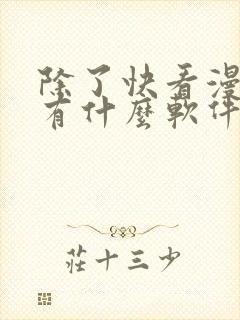 除了快看漫
有什麼軟件
莊十三少